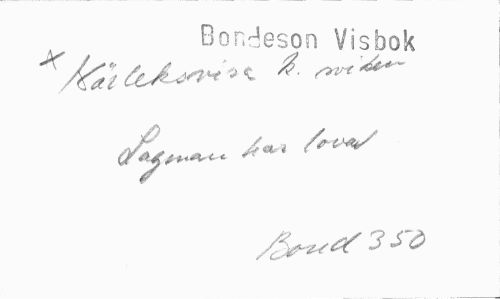 Bondeson Visbok
x Kärleksvisa k. sviken
Lagman har lovat
Bond 350